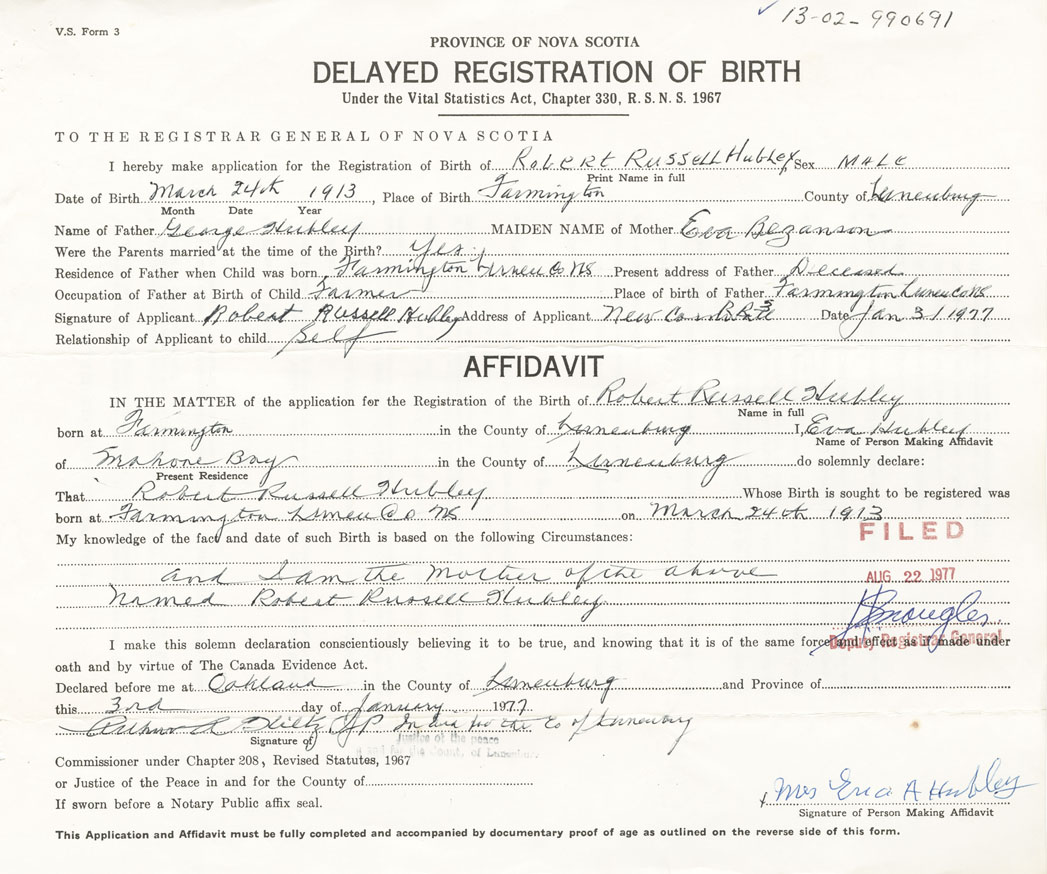 13-02-990691
V.S. Form 3
PROVINCE OF NOVA SCOTIA
DELAYED REGISTRATION OF BIRTH
Under the Vital Statistics Act, Chapter 330, R. S. N. S. 1967
TO THE REGISTRAR GENERAL OF NOVA SCOTIA
I hereby make application for the Registration of Birth of Robert Russell Hubley Sex Male
Print Name in full
Date of Birth March 24th 1913, Place of Birth Farmington County of Lunenburg
Month Date Year
Name of Father George Hubley MAIDEN NAME of Mother Eva Bezanson
Were the Parents married at the time of the Birth? Yes
Residence of Father when Child was born Farmington Lunen Co NS Present address of Father Deceased
Occupation of Father at Birth of Child Farmer Place of birth of Father Farmington Lunen Co NS
Signature of Applicant Robert Russell Hubley Address of Applicant New Date Jan 3/1977
Relationship of Applicant to child Self
AFFIDAVIT
IN THE MATTER of the application for the Registration of the Birth of Robert Russell Hubley
Name in full
born at Farmington in the County of Lunenburg I, Eva Hubley
Name of Person Making Affidavit
of Mahone Bay in the County of Lunenburg do solemnly declare:
Present Residence
That Robert Russell Hubley Whose Birth is sought to be registered was
born at Farmington Lunen Co NS on March 24th 1913
FILED
My knowledge of the fact and date of such Birth is based on the following Circumstances:
and I am the Mother of the above
AUG 22 1977
Named Robert Russell Hubley
I make this solemn declaration conscientiously believing it to be true, and knowing that it is of the same force and effect as if made under
Deputy Registrar General
oath and by virtue of The Canada Evidence Act.
Declared before me at Oakland in the County of Lunenburg and Province of
this 3rd day of January 1977
Arthur R Hiltz JP In and for the Co of Lunenburg
Signature of
Justice of the peace
in and for the County of Lunenburg
Commissioner under Chapter 208, Revised Statutes, 1967
or Justice of the Peace in and for the County of
If sworn before a Notary Public affix seal.
x Mrs Eva A Hubley
Signature of Person Making Affidavit
This Application and Affidavit must be fully completed and accompanied by documentary proof of age as outlined on the reverse side of this form.